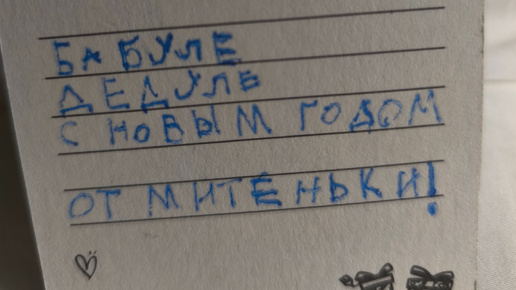 БАБУЛЕ
ДЕДУЛЕ
С НОВЫМ ГОДОМ
ОТ МИТЕНЬКИ!